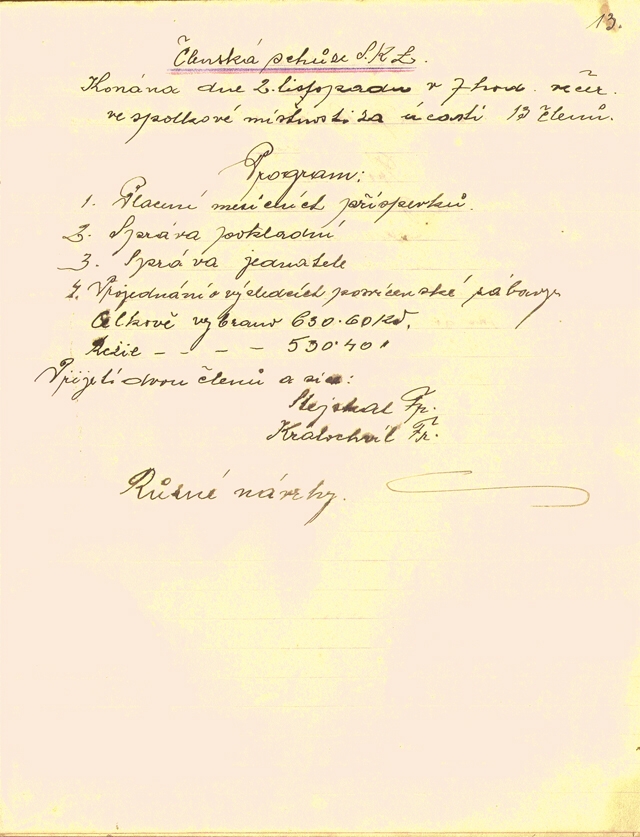 13.
Členská schůze S.K.L.
Konána dne 2. listopadu v 7 hod. večer.
ve spolkové místnosti za účasti 13 členů.
Program:
1. Placení mesičních příspevků.
2. Správa pokladní
3. Správa jednatele
4. Projednání o výsledcích posvícenské zábavy
Celkově vybrano 630·60 Kč.
Režie - - - - 530·40 "
Přijetí dvou členů a sice:
Stejskal Fr.
Kratochvíl Fr.
Různé návrhy.